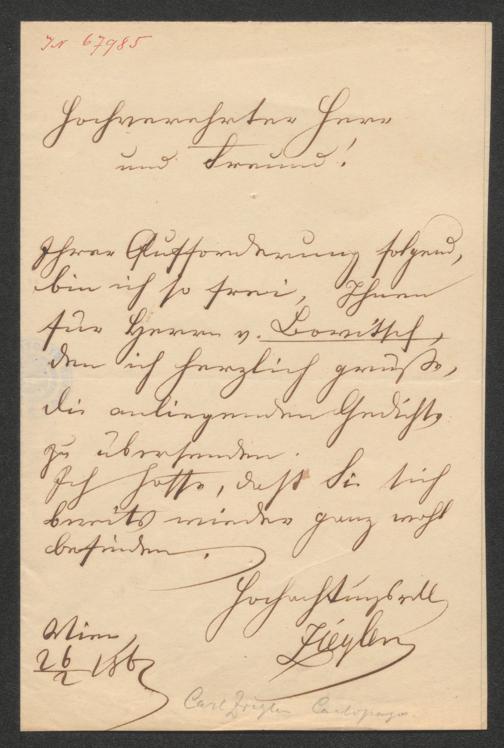 IN 67985
Hochverehrter Herr
und Freund!
Ihrer Aufforderung folgend,
bin ich so frei, Ihnen
für Herrn v. Bowitsch,
den ich herzlich grüße,
die anliegenden Gedichte
zu übersenden.
Ich hoffe, daß Sie sich
bereits wieder ganz wohl
befinden.
Hochachtungsvoll
Ziegler
Wien,
26/2 186
Carl Ziegler Carlopago